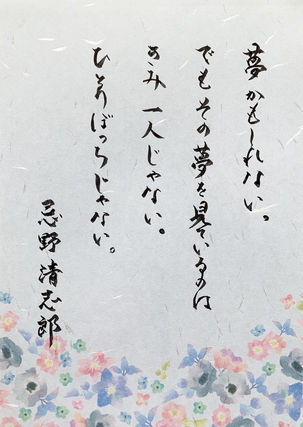 夢かもしれない。
でもその夢を見ているのは
きみ一人じゃない。
ひとりぼっちじゃない。
忌野清志郎